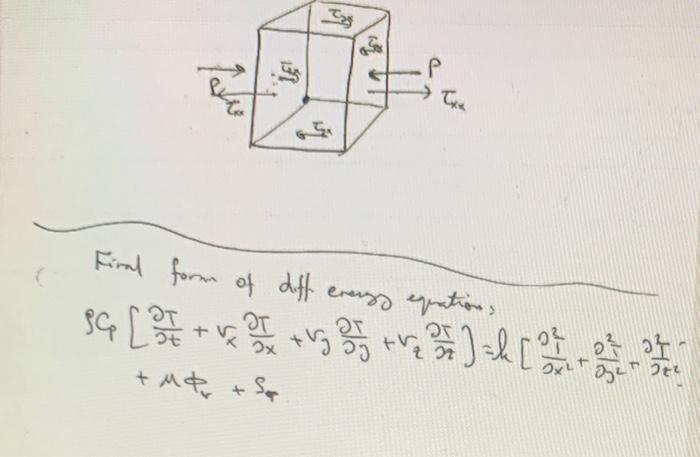 P
τxx
P
τxx
Final form of diff energy equation,
ρCp [ ∂T/∂t + vx ∂T/∂x + vy ∂T/∂y + vz ∂T/∂z ] = k [ ∂²T/∂x² + ∂²T/∂y² + ∂²T/∂z²
+ μ Φv + S